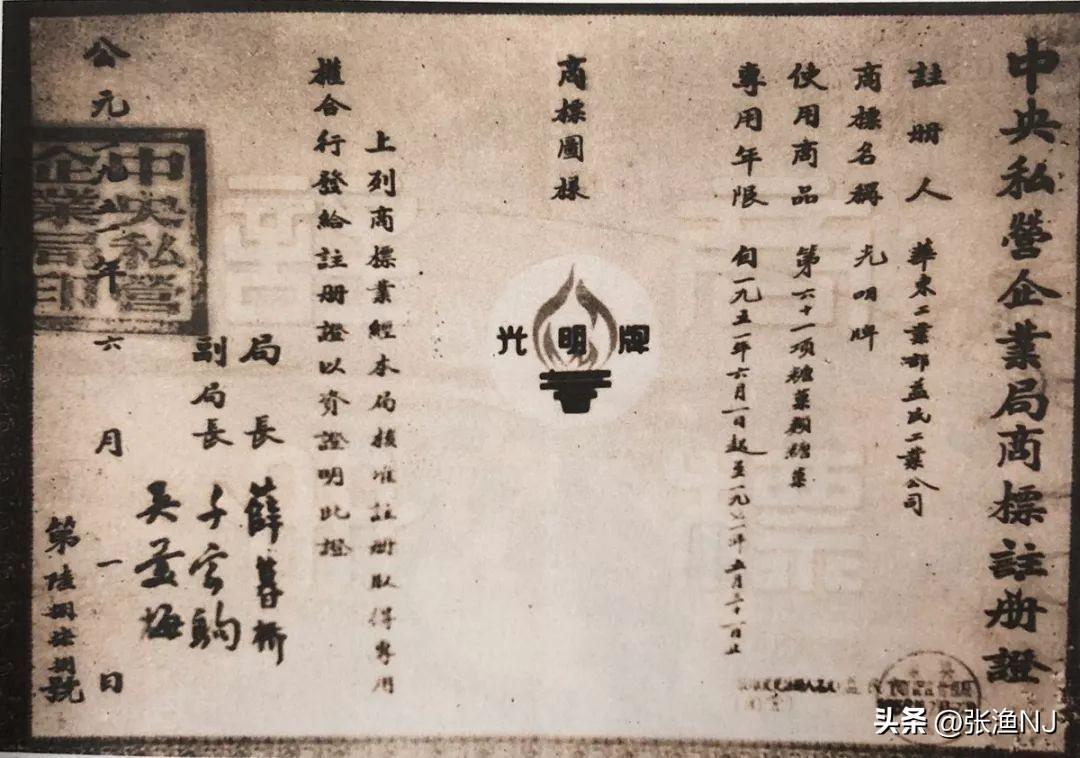 中央私營企業局商標註册證
註册人 華東工業部益民工業公司
商標名稱 光明牌
使用商品 第六十一項糖菓類糖菓
專用年限 自一九五一年六月一日起至一九七一年五月三十一日止
商標圖樣
光明牌
上列商標業經本局核准註册取得專用
權合行發給註册證以資證明此證
局長 薛暮橋
副局長
吳羹梅
公元一九五一年六月一日
中央私營企業局印
頭条 @张渔NJ